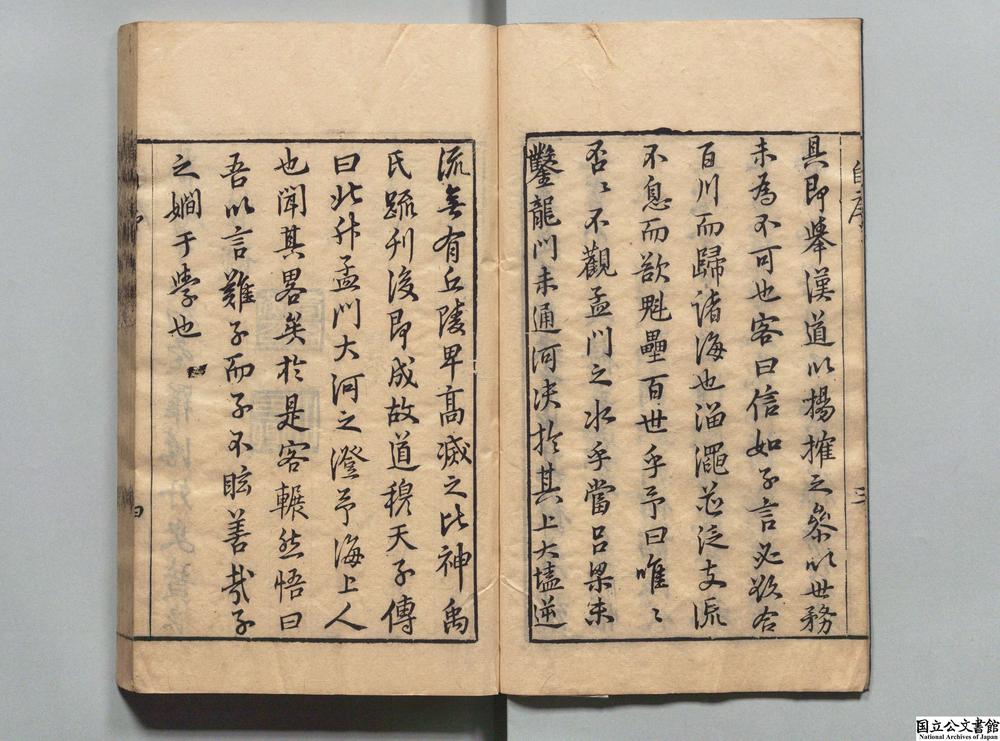 自序
具即舉漢道以揚搉之參以世務
未為不可也客曰信如子言必欲合
百川而歸諸海也淄澠並泛支流
不息而欲魁壘百世乎予曰唯〻
否〻不觀孟門之水乎當呂梁未
鑿龍門未通河决於其上大壒逆
流無有丘陵卑高滅之比神禹
氏疏刊後即成故道穆天子傳
曰北升孟門大河之澄予海上人
也聞其畧矣於是客冁然悟曰
吾以言難子而子不眩善哉子
之嫺于學也
国立公文書館
National Archives of Japan